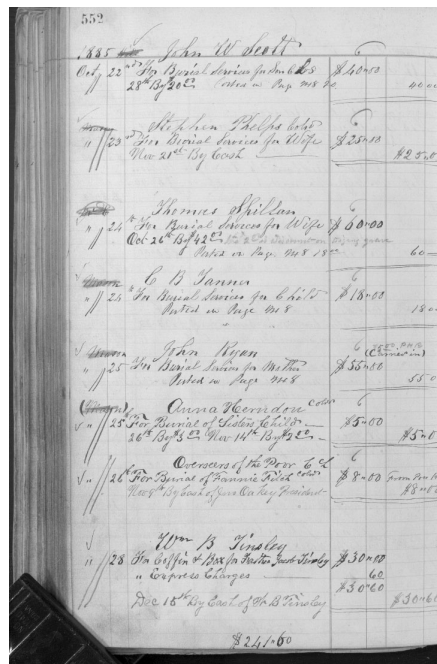 552
1885 John W Scott
Octy 22nd For Burial Services for $40.00
28th By 20 00 Posted in Page 48 40 00
Stephen Phelps Cold
" 23rd For Burial Services for Wife $25.00
Nov 21st By Cash $25.00
Thomas Spillan
" 24th For Burial Services for Wife $60.00
Oct 26th By $42 00
Posted in Page 48 18 60
C B Tanner
" 24 For Burial Services for Child $18.00
Posted in Page 48 18 00
John Ryan
" 25 For Burial Services for Mother $55.00
Posted in Page 48 55 0
Anna Herndon Cold
" 25th For Burial of Sisters Child $5.00
26th By $3 00 Nov 14th By $2 00 $5.0
Overseers of the Poor
" 26th For Burial of Fannie Fitch Cold $8.00
Nov 9th By Cash of Jas Oakey President $8.0
Wm B Tinsley
" 28 For Coffin & Box for Jacob Tinsley $30.00
" Express Charges 60
$30.60
Dec 15th By Cash of W B Tinsley $30.60
$241.60